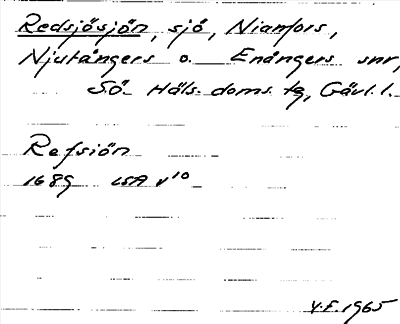 Redsjösjön, sjö, Nianfors,
Njutångers o. Enångers snr,
Sö. Häls. doms. tg, Gävl. l.
Refsiön
1689 LSA v10
V.F. 1965